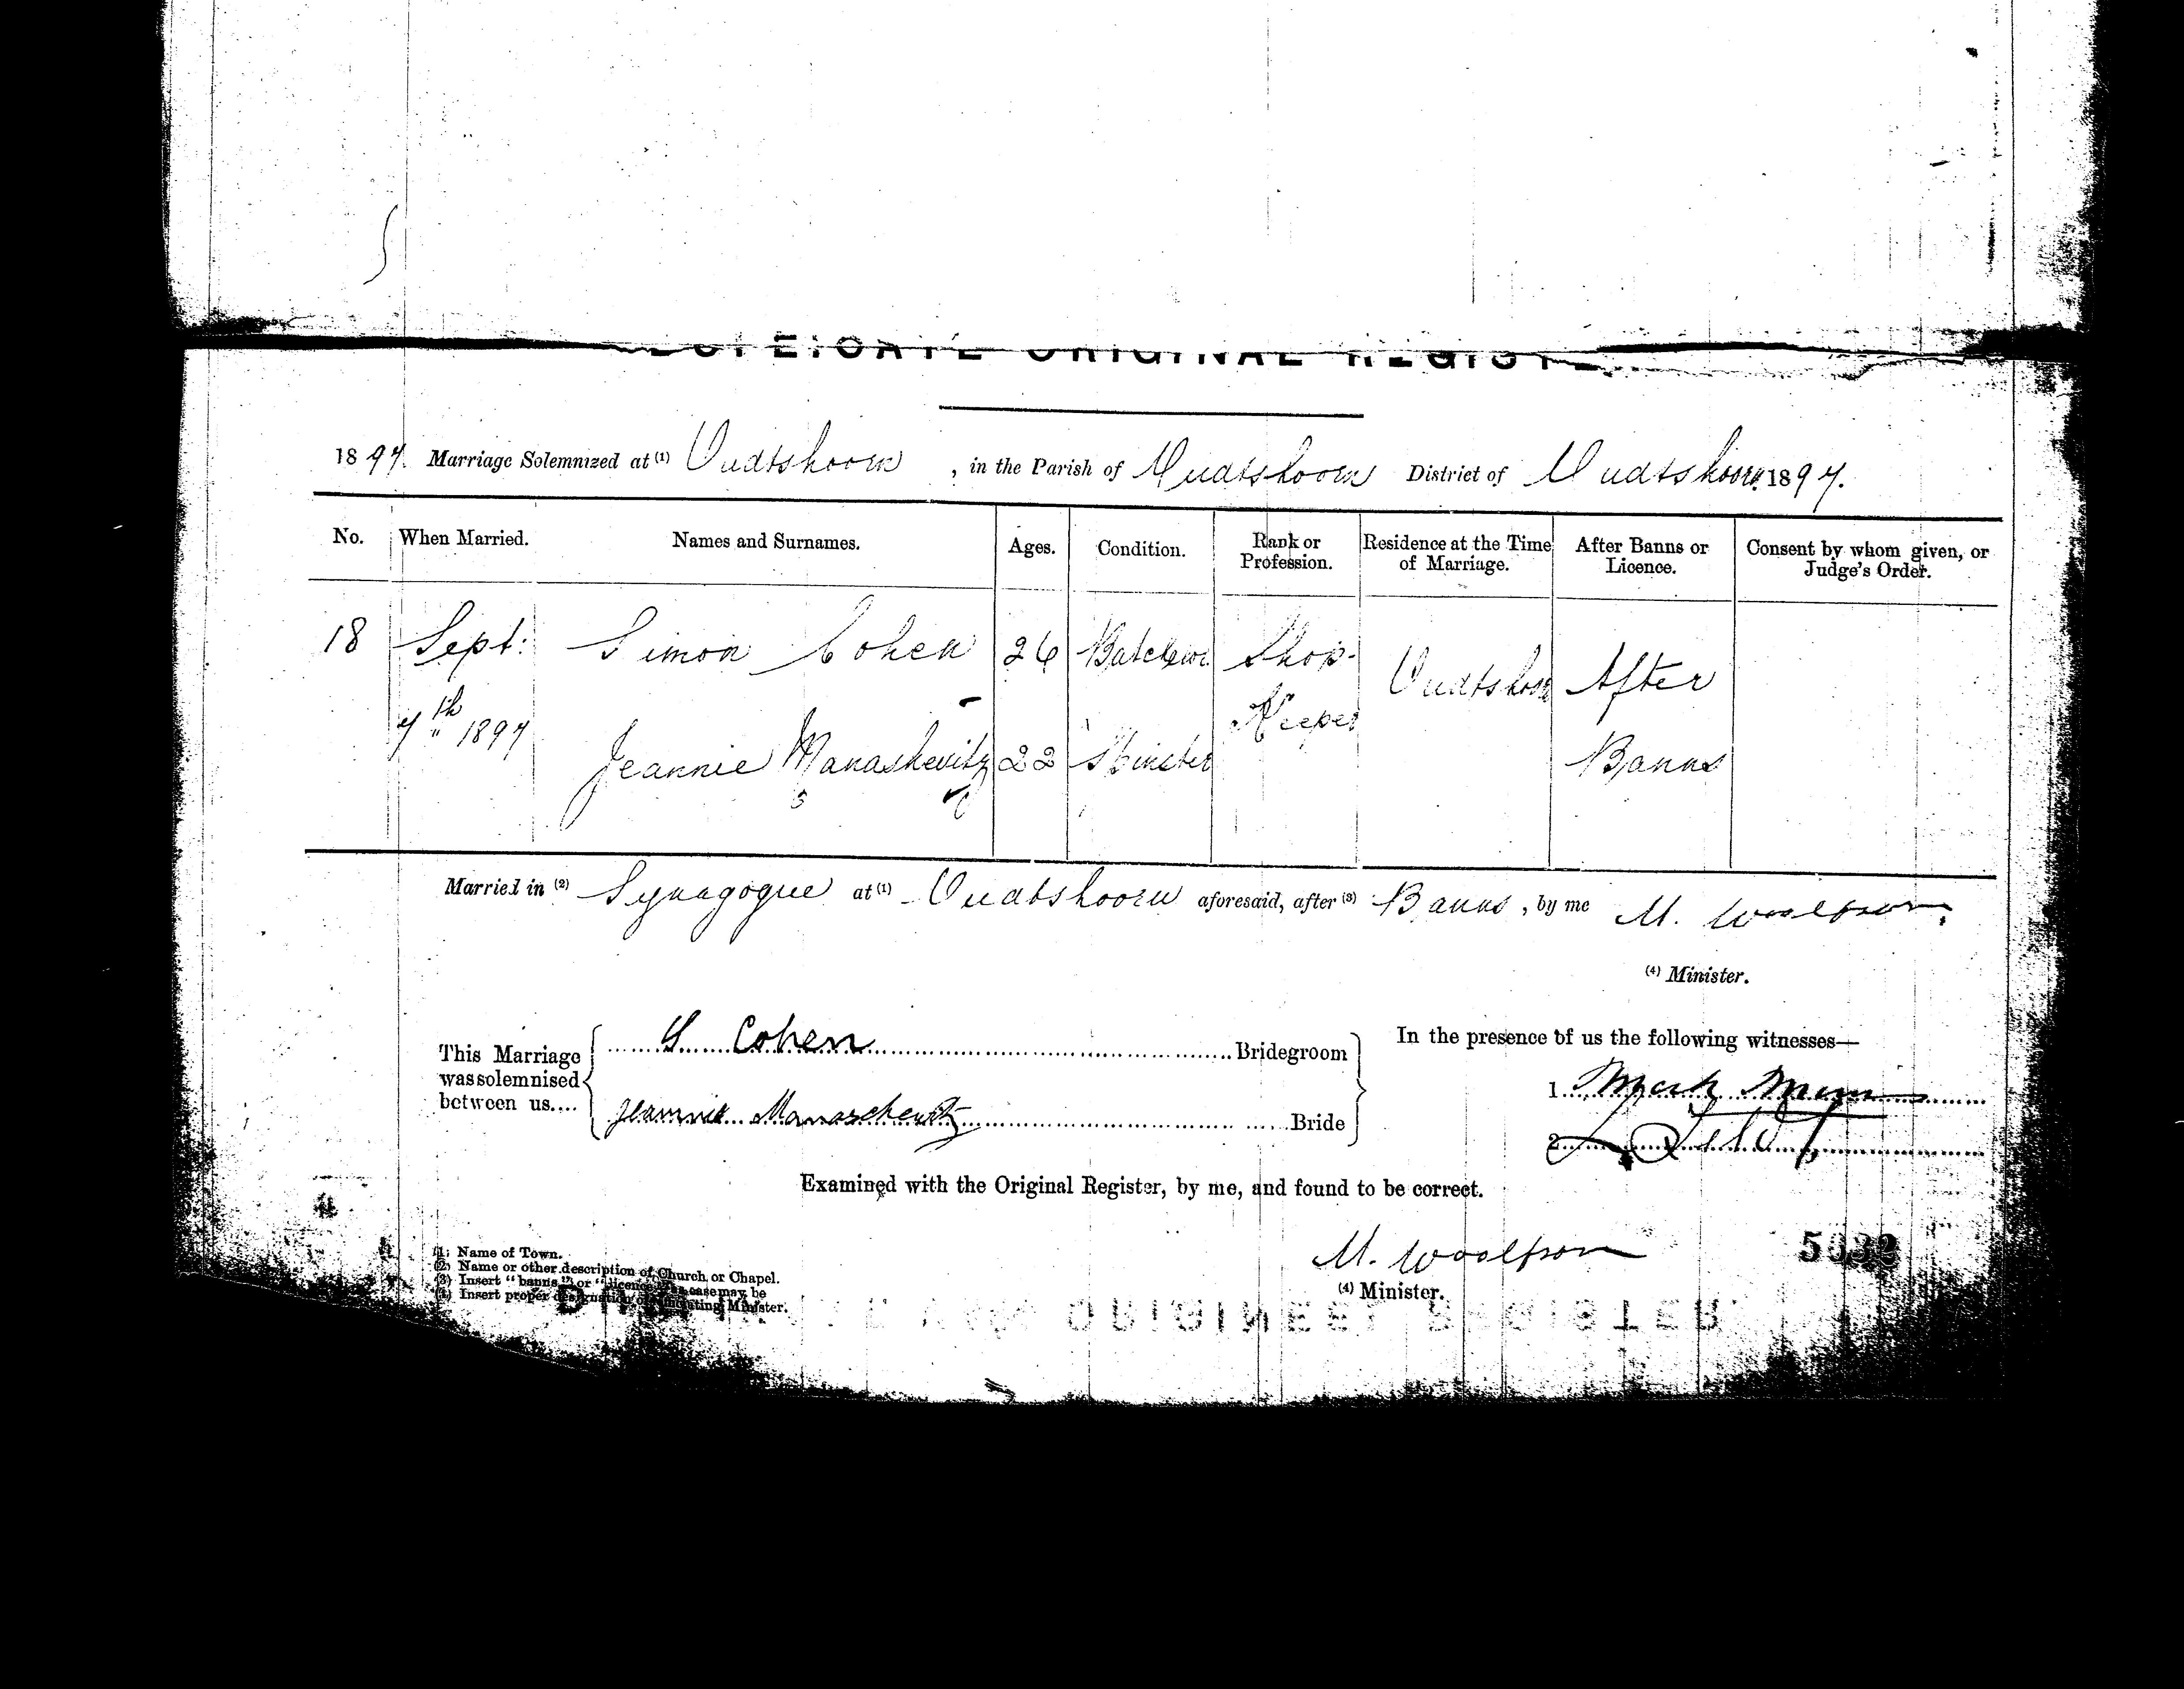 DUPLICATE ORIGINAL REGISTER
1897. Marriage Solemnized at (1) Oudtshoorn, in the Parish of Oudtshoorn District of Oudtshoorn 1897.
No. When Married. Names and Surnames. Ages. Condition. Rank or Profession. Residence at the Time of Marriage. After Banns or Licence. Consent by whom given, or Judge's Order.
18 Sept: Simon Cohen 26 Batchelor Shop- Oudtshoorn After
7th 1897 Jeannie Manashevitz 22 Spinster Keeper Banns
Married in (2) Synagogue at (1) Oudtshoorn aforesaid, after (3) Banns, by me M. Woolfson,
(4) Minister.
This Marriage was solemnised between us....
S Cohen Bridegroom
Jeannie Manaschewitz Bride
In the presence of us the following witnesses—
1.
2.
Examined with the Original Register, by me, and found to be correct.
M. Woolfson
(4) Minister.
(1) Name of Town.
(2) Name or other description of Church or Chapel.
(3) Insert "banns" or "licence" as case may be
(4) Insert proper designation of officiating Minister.